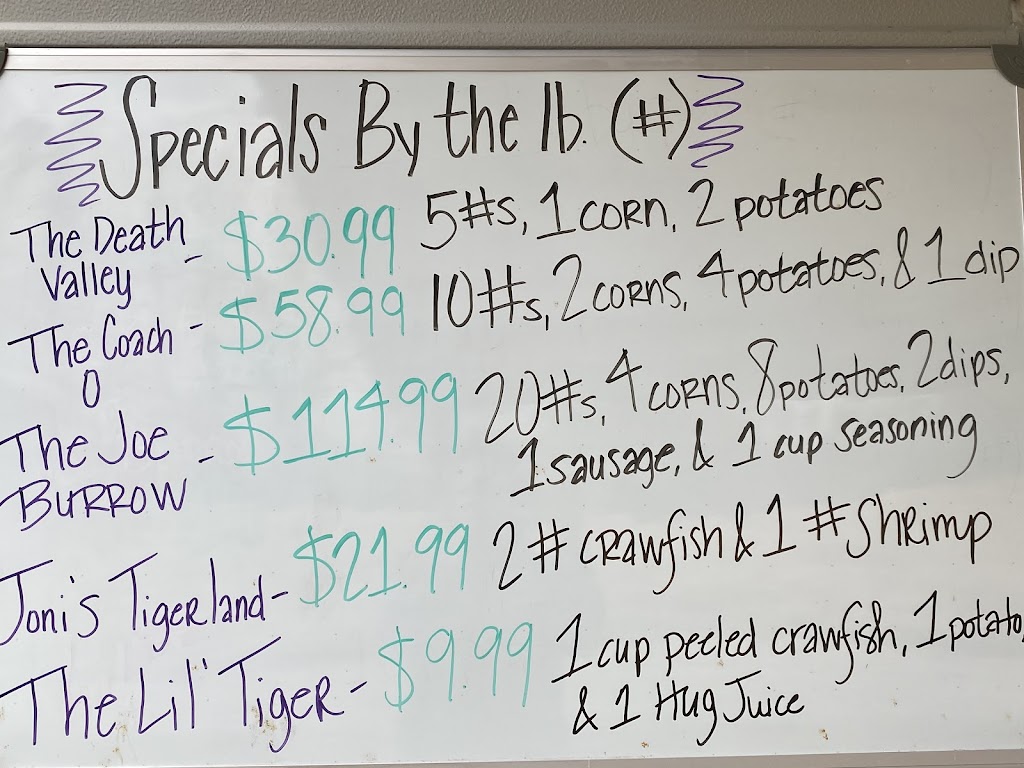 Specials By the lb. (#)
The Death Valley - $30.99 5#s, 1 corn, 2 potatoes
The Coach O - $58.99 10#s, 2 corns, 4 potatoes, & 1 dip
The Joe Burrow - $114.99 20#s, 4 corns, 8 potatoes, 2 dips,
1 sausage, & 1 cup seasoning
Joni's Tigerland - $21.99 2 # crawfish & 1 # Shrimp
The Lil' Tiger - $9.99 1 cup peeled crawfish, 1 potato,
& 1 Hug Juice